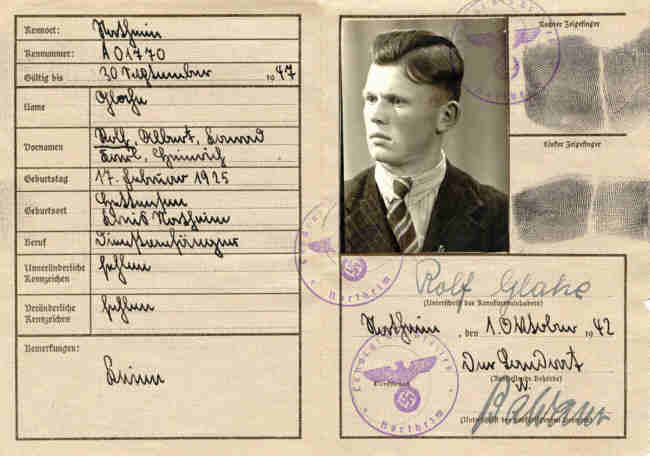 Kennort: Northeim
Kennummer: A 01770
Gültig bis 30 September 1947
Name Glahe
Vornamen Rolf, Albert, Konrad
Karl, Heinrich
Geburtstag 17. Februar 1925
Geburtsort
Kreis Northeim
Beruf Dienstanfänger
Unveränderliche Kennzeichen fehlen
Veränderliche Kennzeichen fehlen
Bemerkungen:
Keine
Rechter Zeigefinger
Linker Zeigefinger
Rolf Glahe
(Unterschrift des Kennkarteninhabers)
Northeim, den 1. Oktober 1942
Der Landrat
(Ausstellende Behörde)
(Unterschrift des ausfertigenden Beamten)
Northeim
Northeim